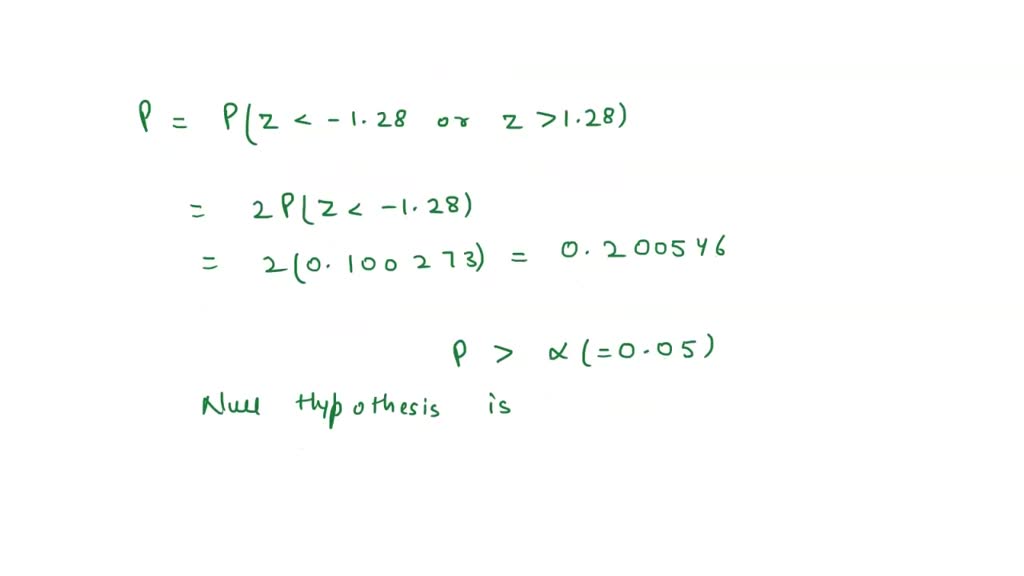 P = P(z < -1.28 or z > 1.28)
= 2P(z < -1.28)
= 2(0.100273) = 0.200546
P > α(=0.05)
Null Hypothesis is